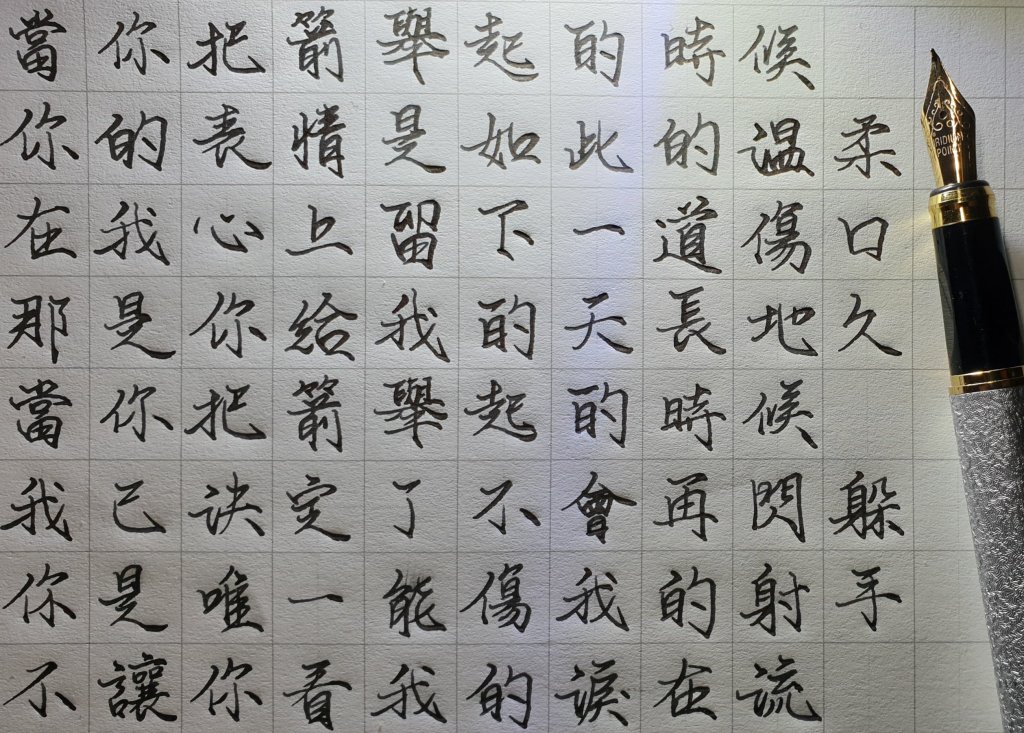 當你把箭舉起的時候
你的表情是如此的溫柔
在我心上留下一道傷口
那是你給我的天長地久
當你把箭舉起的時候
我已決定了不會再閃躲
你是唯一能傷我的射手
不讓你看我的淚在流
IRIDIUM
POINT